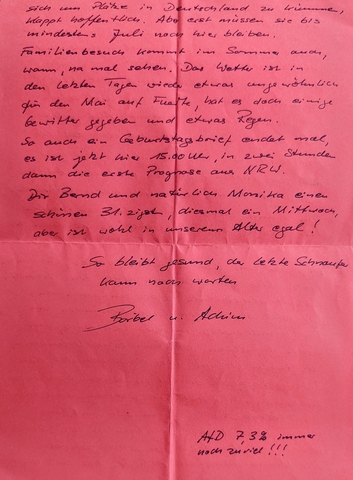 sich um Plätze in Deutschland zu kümmern,
klappt hoffentlich. Aber erst müssen sie bis
mindestens Juli noch hier bleiben.
Familienbesuch kommt im Sommer auch,
wann, na mal sehen. Das Wetter ist in
den letzten Tagen wieder etwas ungewöhnlich
für den Mai auf Fuerte, hat es doch einige
Gewitter gegeben und etwas Regen.
So auch ein Geburtstagsbrief endet mal,
es ist jetzt hier 15.00 Uhr, in zwei Stunden
dann die erste Prognose aus NRW.
Dir Bernd und natürlich Monika einen
schönen 31.zigsten, diesmal ein Mittwoch,
aber ist wohl in unserem Alter egal!
So bleibt gesund, der letzte Schnaufer
kann noch warten
Bärbel u. Achim
AfD 7,3% immer
noch zuviel!!!